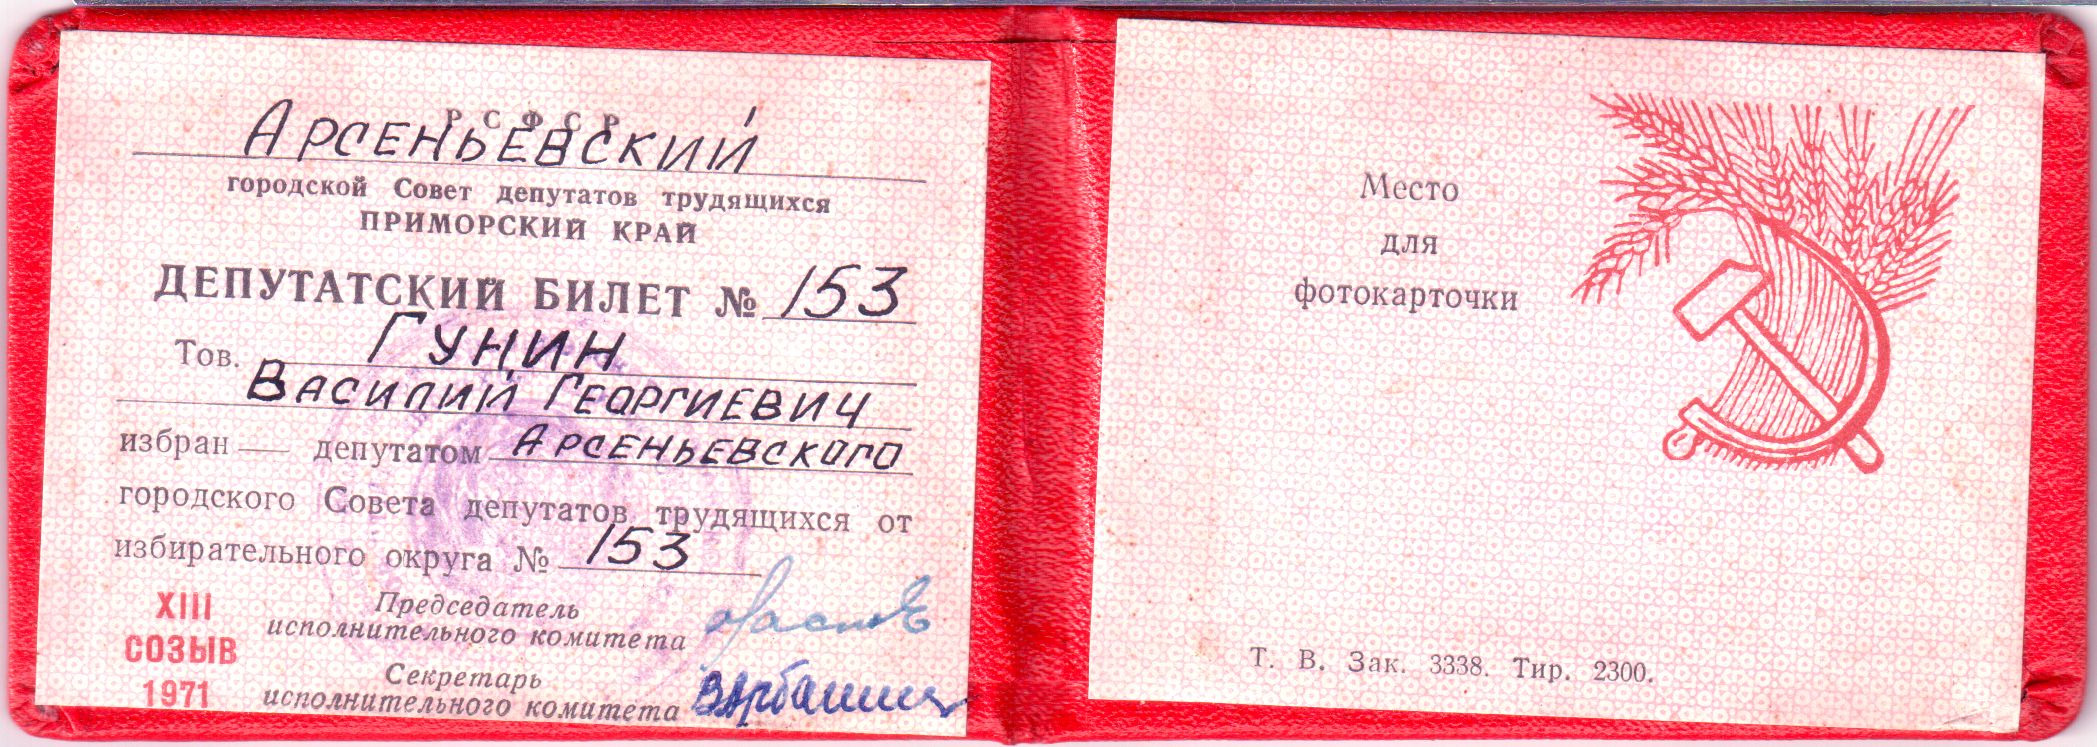 РСФСР
АРСЕНЬЕВСКИЙ
городской Совет депутатов трудящихся
ПРИМОРСКИЙ КРАЙ
ДЕПУТАТСКИЙ БИЛЕТ № 153
Тов. ГУНИН
ВАСИЛИЙ ГЕОРГИЕВИЧ
избран — депутатом АРСЕНЬЕВСКОГО
городского Совета депутатов трудящихся от
избирательного округа № 153
XIII
СОЗЫВ
1971
Председатель
исполнительного комитета
Секретарь
исполнительного комитета
Место
для
фотокарточки
Т. В. Зак. 3338. Тир. 2300.